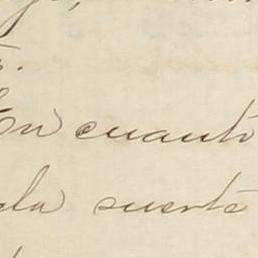 En cuanto
da suerte